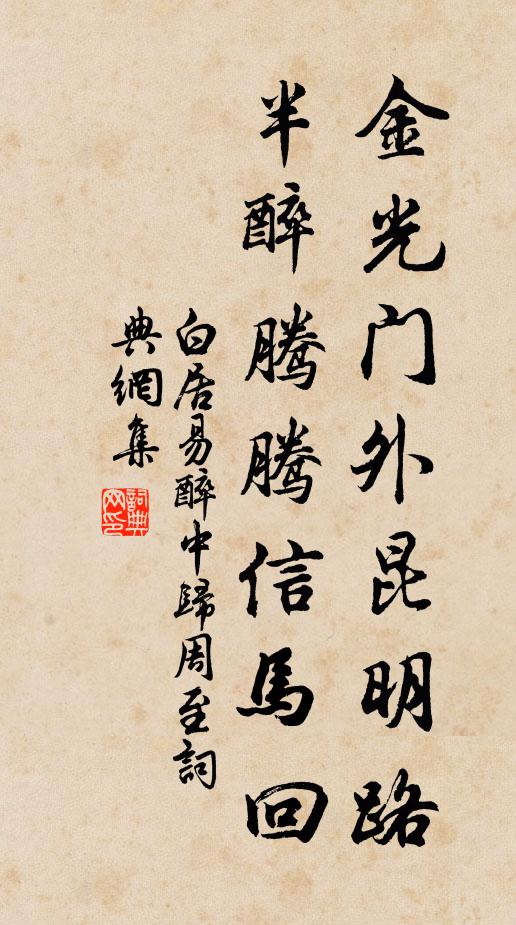 金光門外昆明路
半醉騰騰信馬回
白居易醉中歸周至詞
典網集
詞典
网印